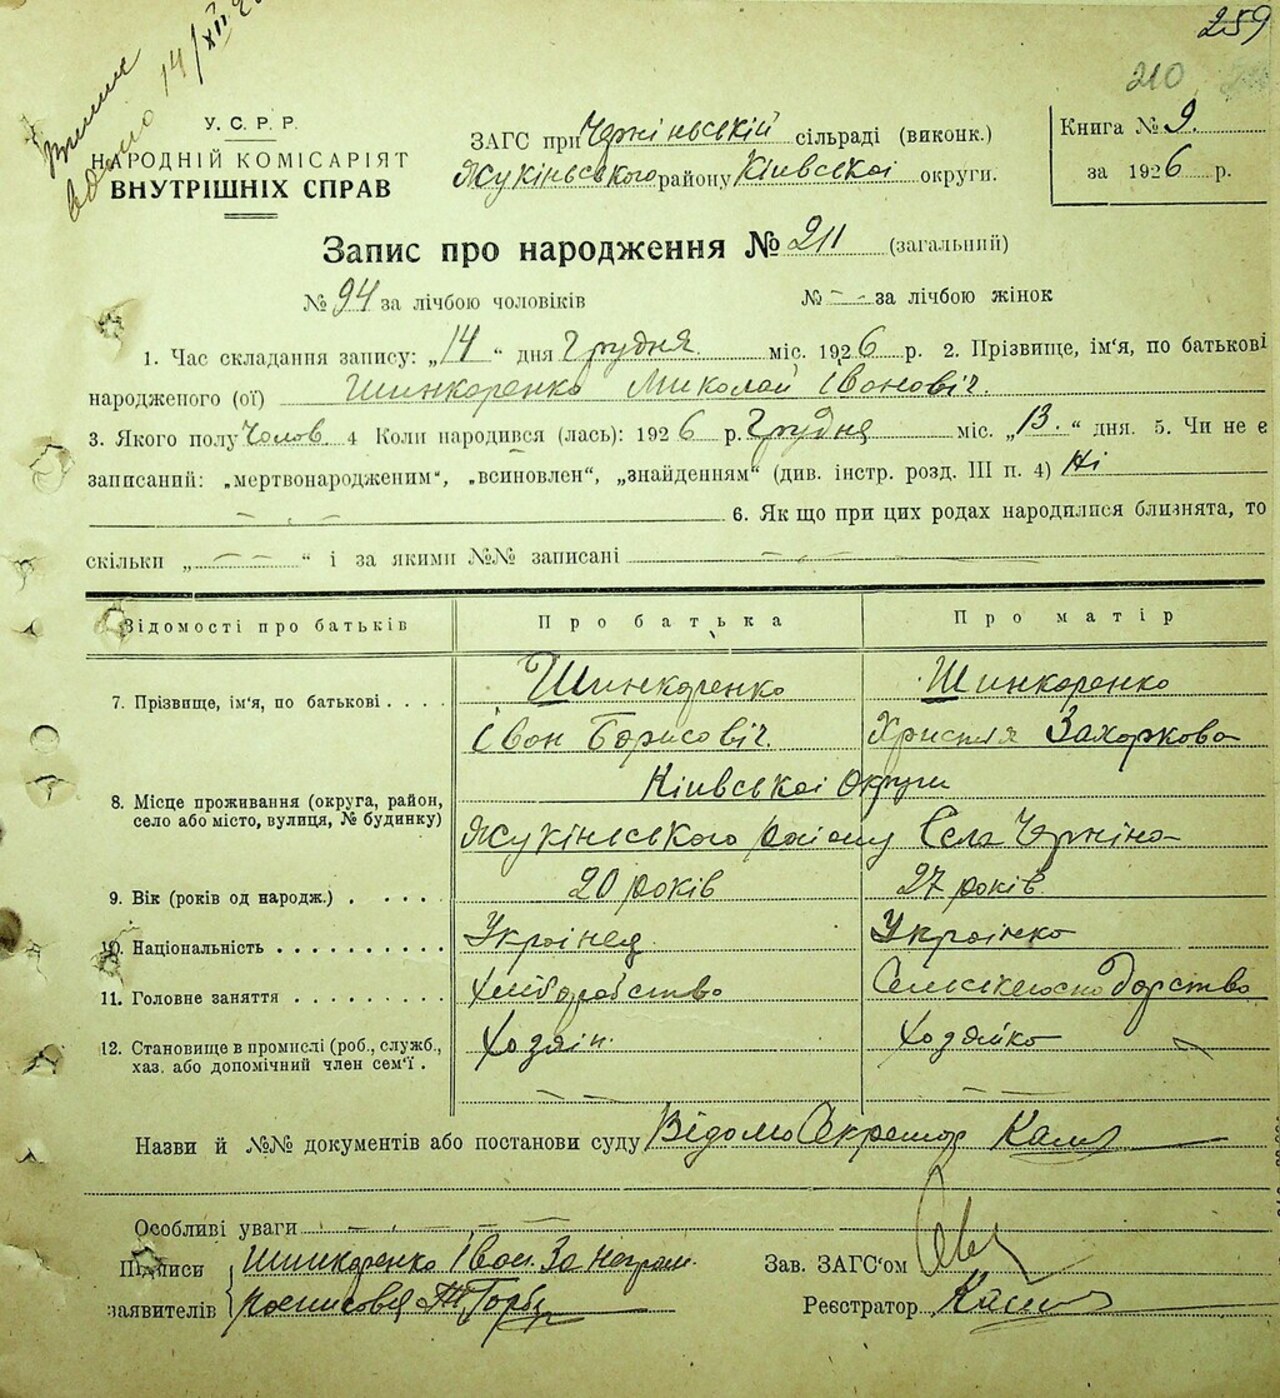 259
210
14/XII
У. С. Р. Р.
НАРОДНІЙ КОМІСАРІЯТ
ВНУТРІШНІХ СПРАВ
ЗАГС при Черніньській сільраді (виконк.)
Жукіньського району Київської округи.
Книга № 9.
за 1926 р.
Запис про народження № 211 (загальний)
№ 94 за лічбою чоловіків № - - за лічбою жінок
1. Час складання запису: „14“ дня Грудня міс. 1926 р. 2. Прізвище, ім'я, по батькові
народженого (ої) Шинкаренко Миколай Іванович.
3. Якого полу Чолов. 4 Коли народився (лась): 1926 р. Грудня міс. „13.“ дня. 5. Чи не є
записаний: „мертвонародженим“, „всиновлен“, „знайденням“ (див. інстр. розд. III п. 4) Ні
6. Як що при цих родах народилися близнята, то
скільки „ — — “ і за якими №№ записані
Відомості про батьків Про батька Про матір
7. Прізвище, ім'я, по батькові . . . . Шинкаренко Шинкаренко
Іван Борисович. Христія Захаркова
8. Місце проживання (округа, район, село або місто, вулиця, № будинку) Київської Округи
Жукінського району Села Чернина
9. Вік (років од народж.) . . . . . 20 років 27 років.
10. Національність . . . . . . . . . . Українец Українка
11. Головне заняття . . . . . . . . . Хліборобство Сельськегоспо Дарство
12. Становище в промислі (роб., служб., хаз. або допомічний член сем'ї . Хозяін. Хозяйка
Назви й №№ документів або постанови суду Відомо Секретар
Особливі уваги
Підписи Шинкаренко Іван. За неграм.
заявителів Росписовся Горб
Зав. ЗАГС'ом
Реєстратор